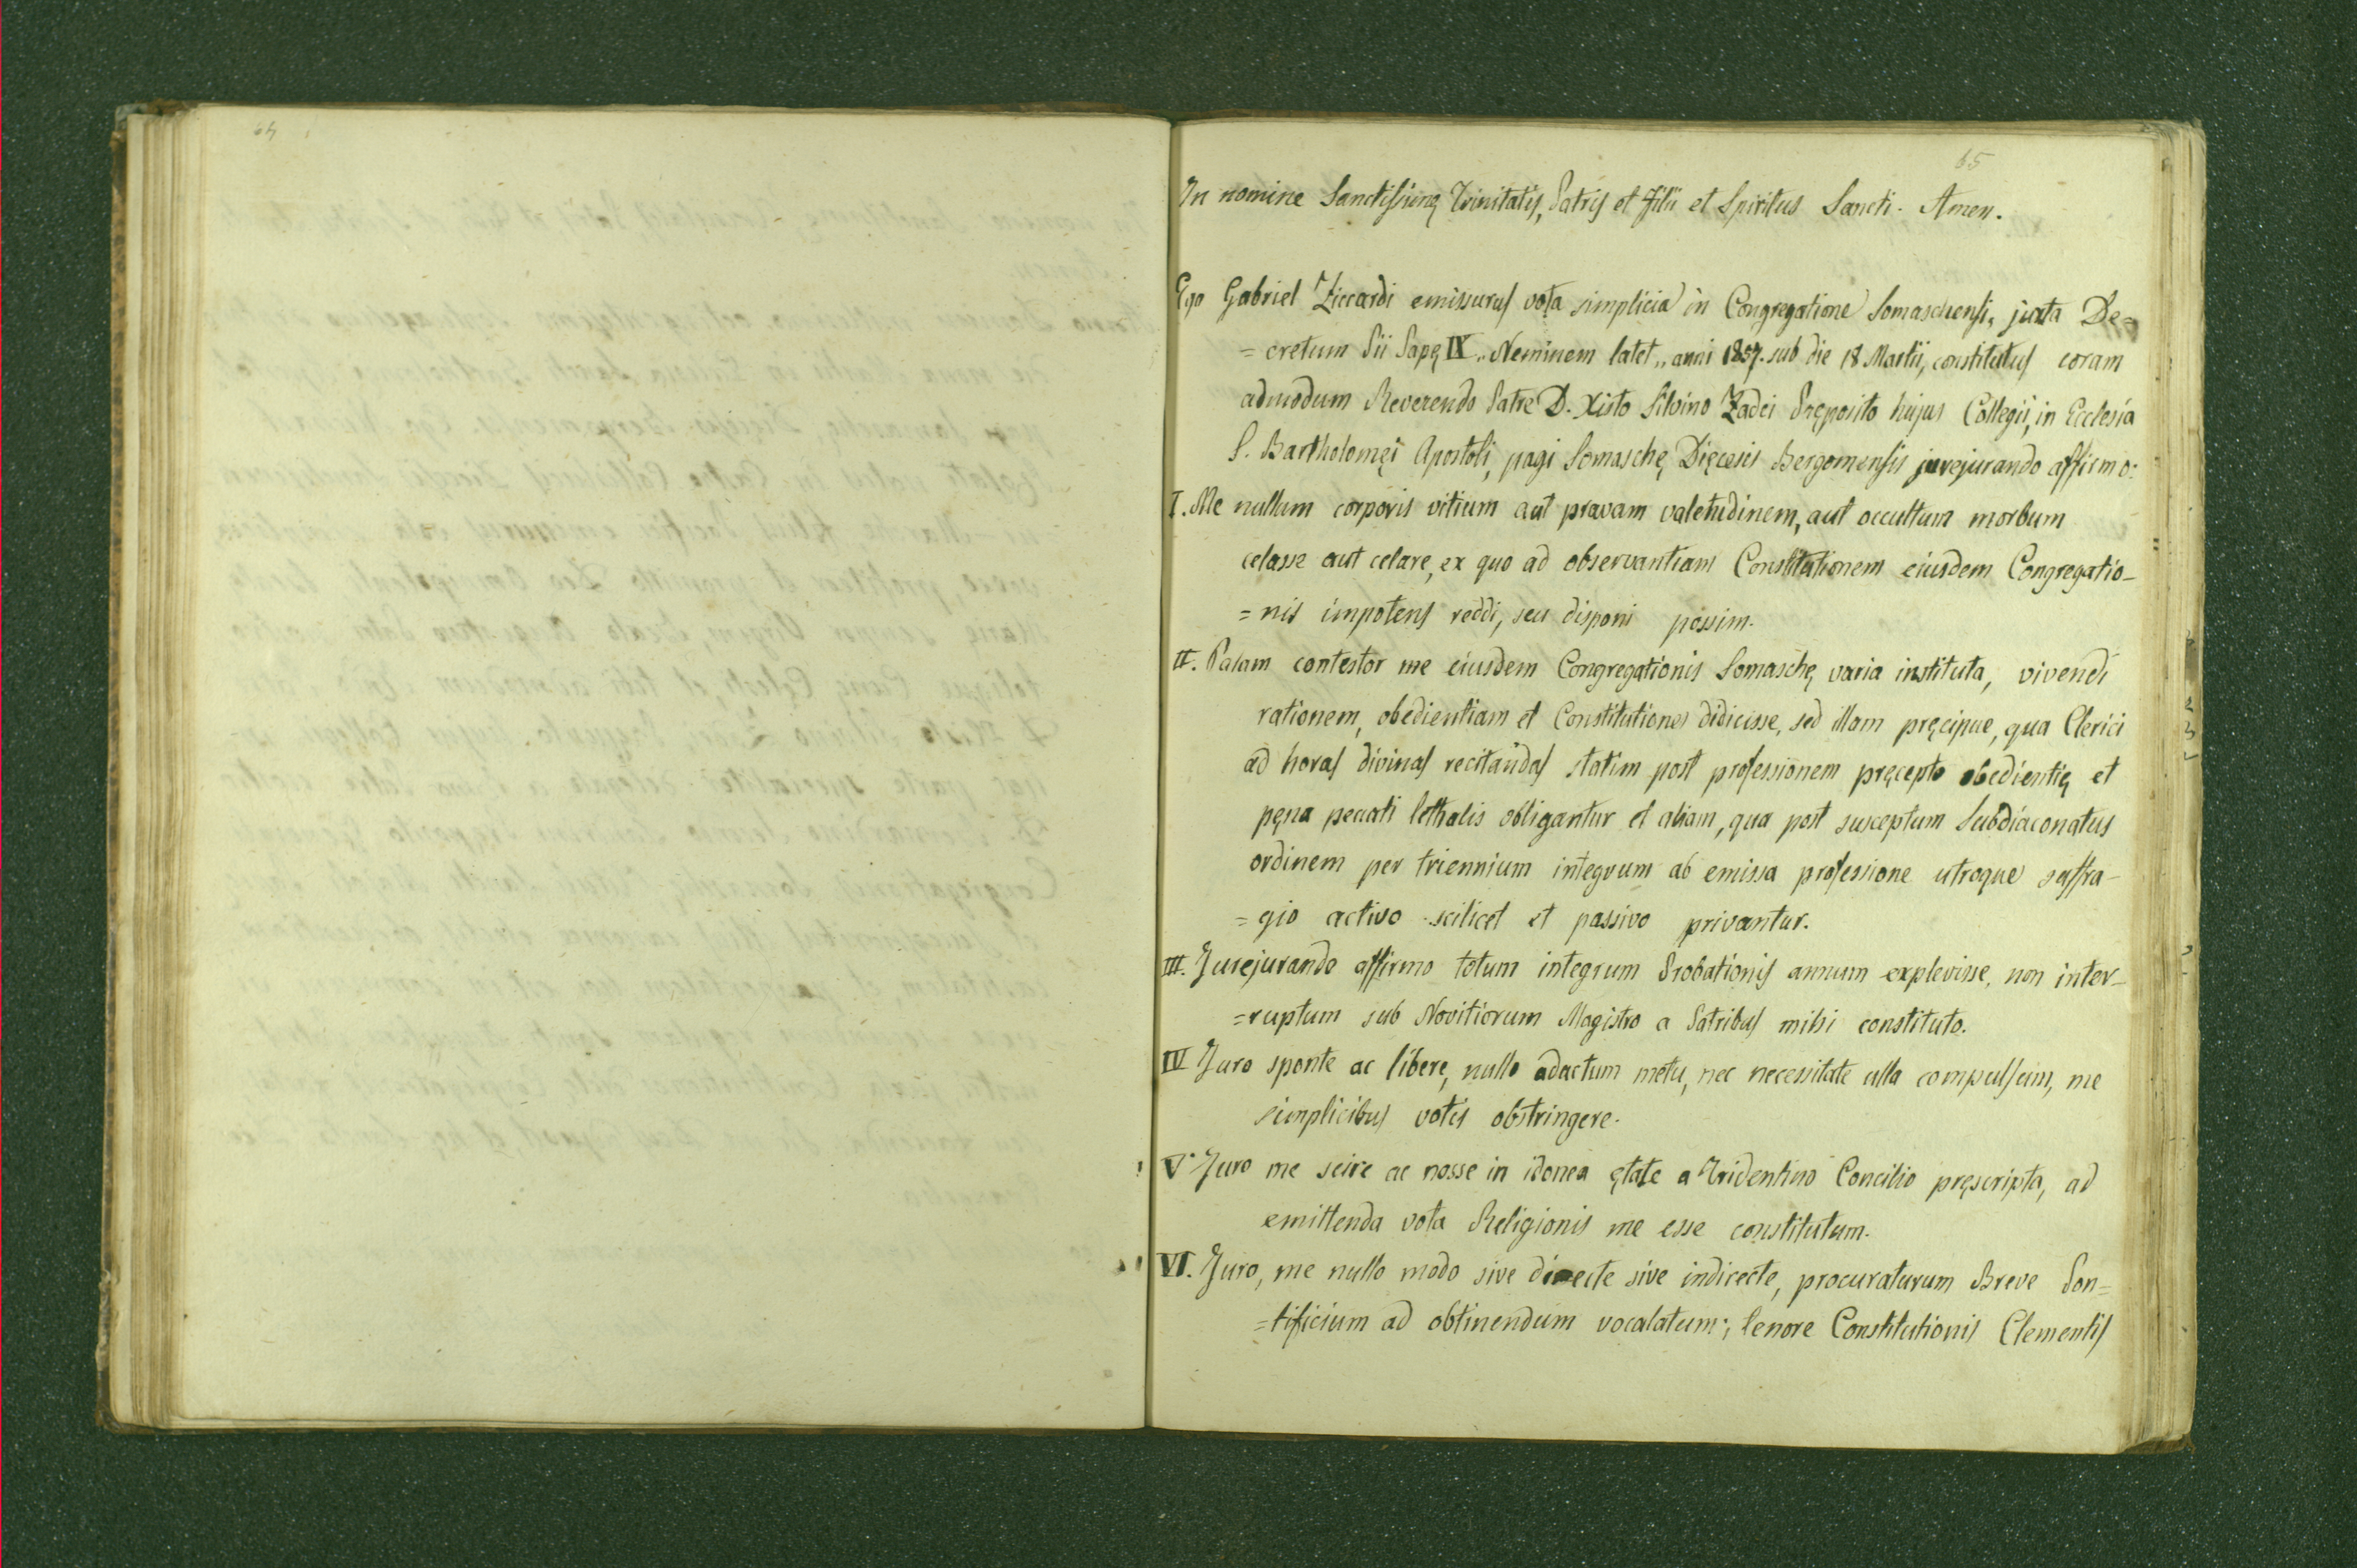 64
65
In nomine Sanctissimę Trinitatis, Patris et Filii et Spiritus Sancti. Amen.
Ego Gabriel Ziccardi emissurus vota simplicia in Congregatione Somaschensi, juxta De=
=cretum Pii Papę IX „Neminem latet„ anni 1857. sub die 18 Martii, constitutus coram
admodum Reverendo Patre D. Xisto Silvino Zadei Pręposito hujus Collegii, in Ecclesia
S. Bartholomęi Apostoli, pagi Somaschę Dięcesis Bergomensis jurejurando affirmo:
I. Me nullum corporis vitium aut pravam valetudinem, aut occultum morbum
celasse aut celare, ex quo ad observantiam Constitutionem eiusdem Congregatio-
=nis impotens reddi, seu disponi possim.
II. Palam contestor me eiusdem Congregationis Somaschę varia instituta, vivendi
rationem, obedientiam et Constitutiones didicisse, sed illam pręcipue, qua Clerici
ad horas divinas recitandas statim post professionem pręcepto obedientię et
pęna peccati lethalis obligantur et aliam, qua post susceptum Subdiaconatus
ordinem per triennium integrum ab emissa professione utroque suffra-
=gio activo scilicet et passivo privantur.
III. Jurejurando affirmo totum integrum Probationis annum explevisse, non inter-
=ruptum sub Novitiorum Magistro a Patribus mihi constituto.
IV Juro sponte ac libere, nullo adactum metu, nec necessitate ulla compulsum, me
simplicibus votis obstringere.
V. Juro me scire ac nosse in idonea ętate a Tridentino Concilio pręscripta, ad
emittenda vota Religionis me esse constitutum.
VI. Juro, me nullo modo sive directe sive indirecte, procuraturum Breve Pon=
=tificium ad obtinendum vocalatum; tenore Constitutionis Clementis